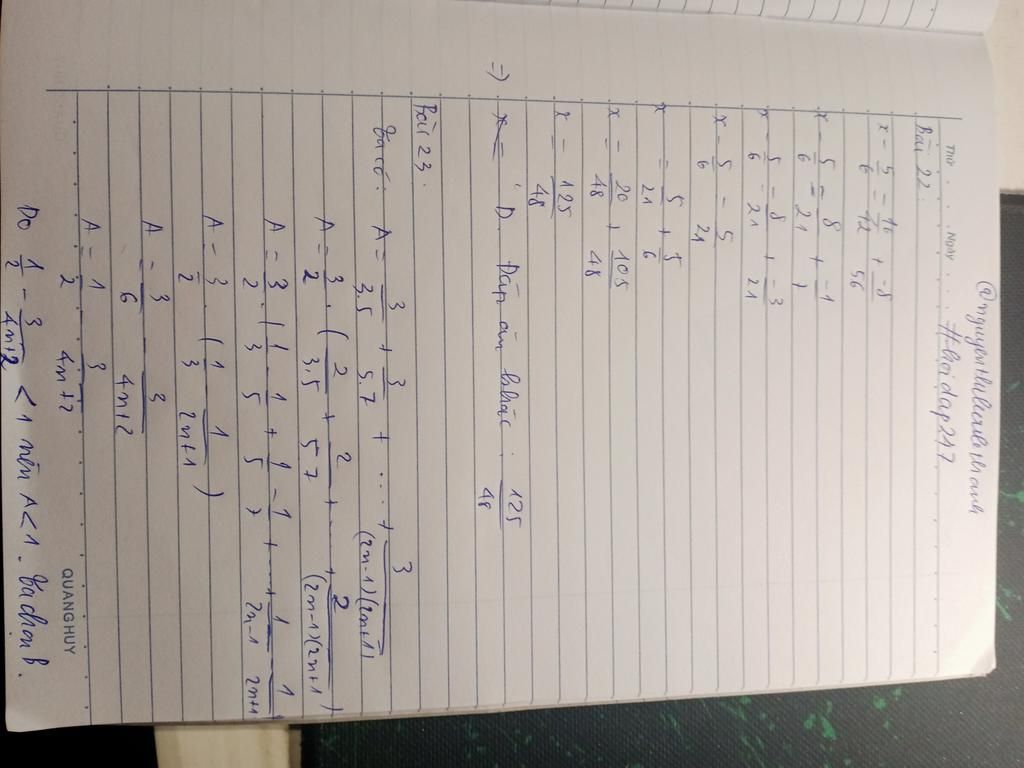 @nguyenthikimkhanh
#hoidap247
THỨ . . . NGÀY . . .
Bài 22.
x - 5/6 = 16/42 + -8/56
x - 5/6 = 8/21 + -1/7
x - 5/6 = 8/21 + -3/21
x - 5/6 = 5/21
x = 5/21 + 5/6
x = 20/48 + 105/48
x = 125/48
=> D. Đáp án khác. 125/48
Bài 23.
Ta có: A = 3/3.5 + 3/5.7 + .... + 3/(2n-1)(2n+1)
A = 3/2 . ( 2/3.5 + 2/5.7 + .... + 2/(2n-1)(2n+1) )
A = 3/2 . ( 1/3 - 1/5 + 1/5 - 1/7 + .... + 1/2n-1 - 1/2n+1
A = 3/2 . ( 1/3 - 1/2n+1 )
A = 3/6 - 3/4n+2
A = 1/2 - 3/4n+2
Do 1/2 - 3/4n+2 < 1 nên A < 1. Ta chọn B.
QUANG HUY